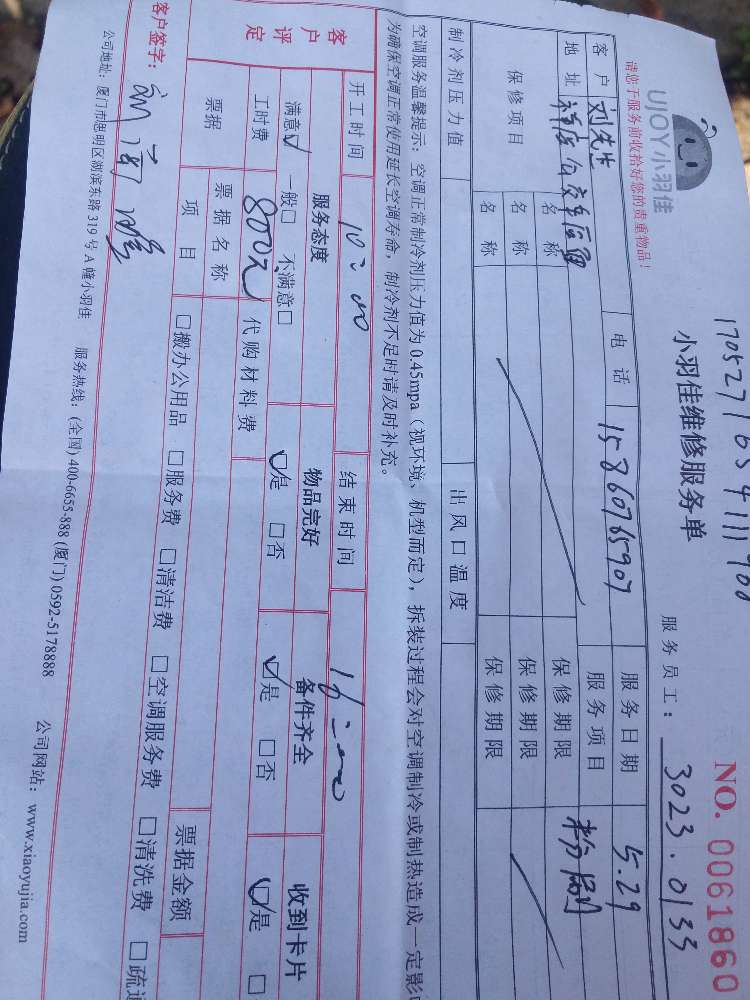 170527165411190
UJOY小羽佳
请您于服务前收拾好您的贵重物品!
小羽佳维修服务单
NO. 0061860
服务员工: 3023.0133
客户 刘先生 电话 15860765907 服务日期 5.29
地址 服务项目
保修项目 名称 保修期限
名称 保修期限
名称 保修期限
制冷剂压力值 出风口温度
空调服务温馨提示: 空调正常制冷剂压力值为0.45mpa(视环境、机型而定), 拆装过程会对空调制冷或制热造成一定影
为确保空调正常使用延长空调寿命, 制冷剂不足时请及时补充。
开工时间 10:00 结束时间
客户评定 服务态度 物品完好 备件齐全 收到卡片
满意☑ 一般□ 不满意□ ☑是 □否 ☑是 □否 ☑是 □
工时费 800元 代购材料费
票据 票据名称 票据金额
项目 □搬办公用品 □服务费 □清洁费 □空调服务费 □清洗费 □疏通
客户签字:
公司地址: 厦门市思明区湖滨东路319号A幢小羽佳 服务热线: (全国) 400-6655-888 (厦门) 0592-5178888 公司网站: www.xiaoyujia.com